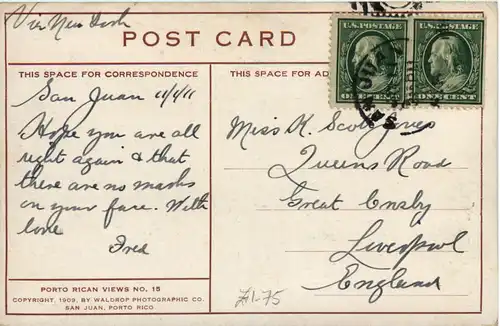 Via New York
POST CARD
U.S. POSTAGE
ONE CENT
U.S. POSTAGE
ONE CENT
THIS SPACE FOR CORRESPONDENCE
THIS SPACE FOR AD
San Juan 11/1/11
Hope you are all
right again & that
there are no marks
on your face. With
love
Fred
Miss K. Scott Jones
Queens Road
Great Crosby
Liverpool
England
PORTO RICAN VIEWS NO. 15
COPYRIGHT, 1909, BY WALDROP PHOTOGRAPHIC CO.
SAN JUAN, PORTO RICO
£1-75